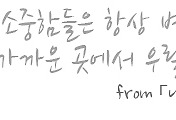 소중함들은 항상
가까운 곳에서
from